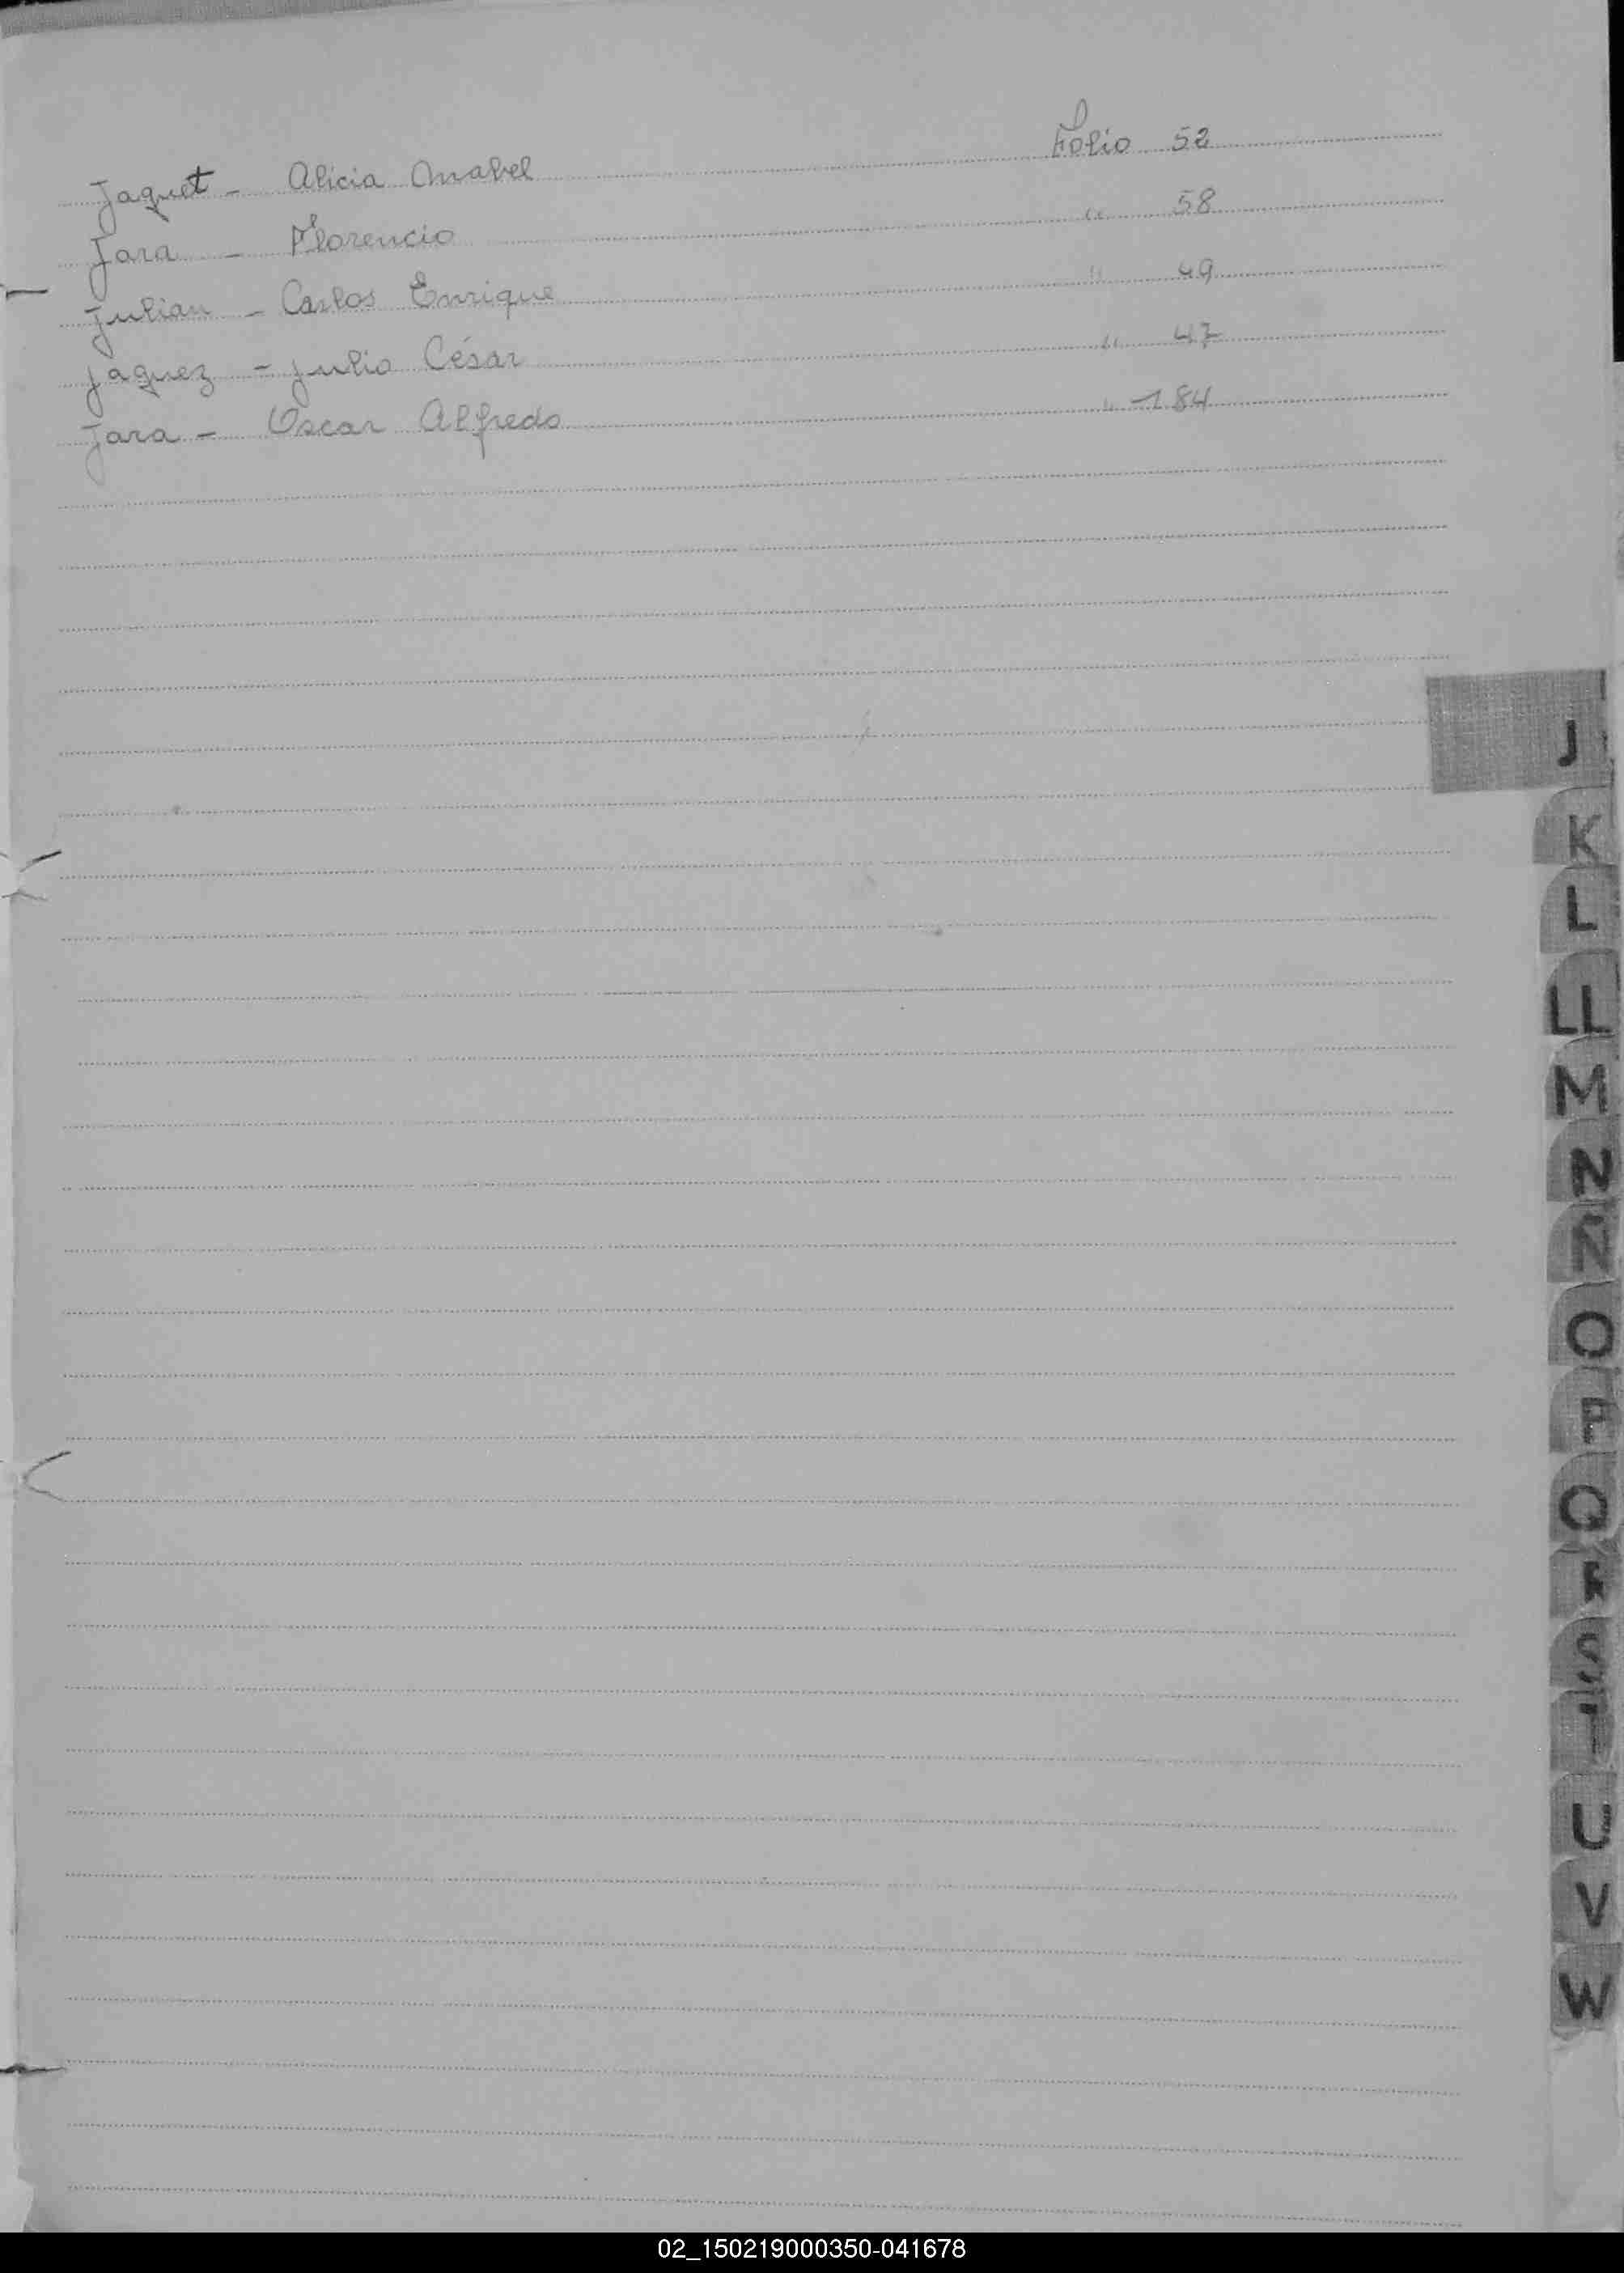 Jaquet - Alicia Anabel Folio 52
Jara - Florencio " 58
Julian - Carlos Enrique " 49
Jaquez - Julio César " 47
Jara - Oscar Alfredo " 184
J
K
L
LL
M
N
Ñ
O
P
Q
R
S
T
U
V
W
02_150219000350-041678